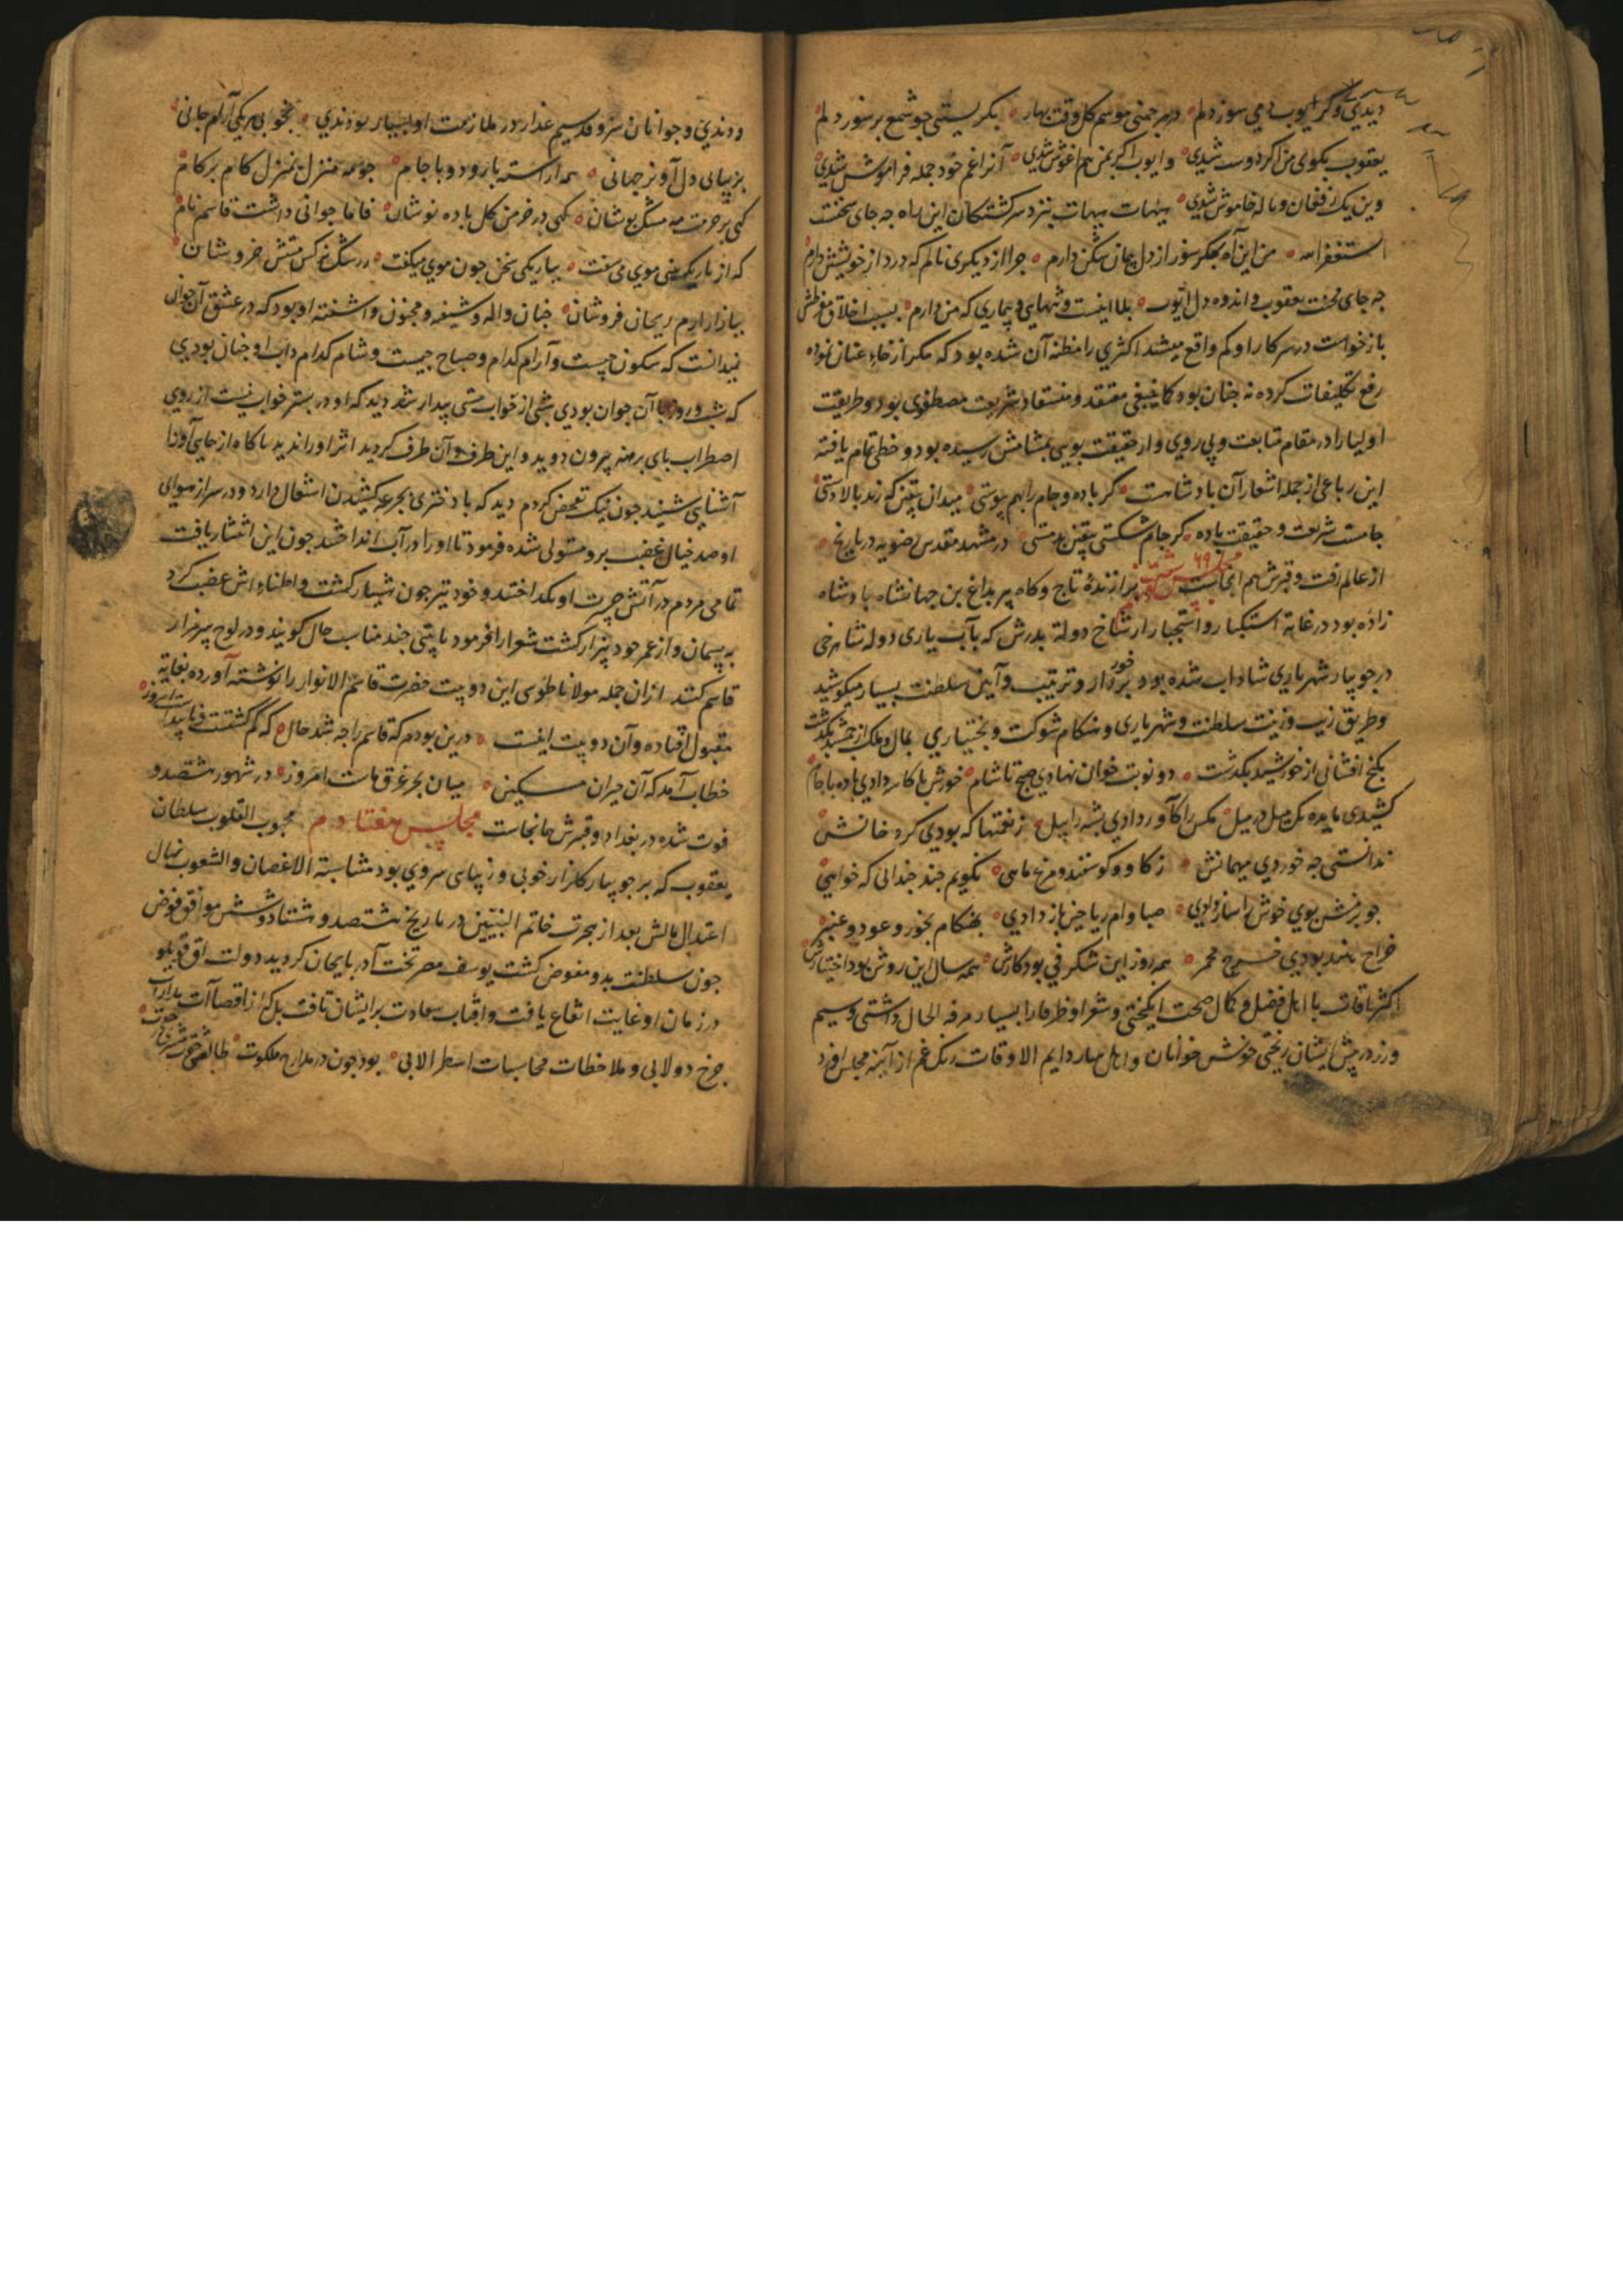 دیدی وکر ایوب دمی سوز دلم در هر چمنی موسم کل وقت بهار بکریستی چو شمع بر سوز دلم
یعقوب بکوی من اکر دوست شدی وایوب اکر بمن هم اغوش شدی آنرا غم خود جمله فراموش شدی
وین یک ز فغان و ناله خاموش شدی هیهات هیهات بنزد سرکشتکان این راه چه جای سخنست
استغفر الله من این آه جکر سوز از دل پیمان شکن دارم چرا از دیکری نالم که درد از خویشتن دارم
چه جای محنت یعقوب و اندوه دل ایوب بلا اینست و تنهایی و بیماری که من دارم بسبب اخلاق
بازخواست در سرکار او کم واقع میشد اکثری را مظنه آن شده بود که مکر از خانه
رفع تکلیفات کرده نه چنان بود کما ینبغی معتقد و منقاد شریعت مصطفوی بود و طریقت
اولیا را در مقام متابعت و پی روی و از حقیقت بویی بمشامش رسیده بود و حظی تمام یافته
این رباعی از جمله اشعار آن بادشاهست کر باده و جام را بهم پیوستی میدان بیقین که زند بالا دستی
جامست شریعت و حقیقت باده کر جام شکستی بیقین بد مستی در مشهد مقدس رضویه در تاریخ
از عالم رفت و قبرش هم انجاست برازنده تاج و کاه پیر بداغ بن جهانشاه بادشاه
زاده بود در غایة استکبار و از شاخ دولة بدرش که بآب یاری دوله شاهرخی
در جویبار شهریاری شاداب شده بود برخوردار و ترتیب و آیین سلطنت بسیار میکوشید
وطریق زیب و زینت سلطنت و شهریاری و هنکام شوکت و بختیاری بمال و ملک از جمشید بکذشت
بکنج افشانی از خورشید بکذشت دو نوبت خوان نهادی صبح تا شام خورش با کاسه دادی باده با جام
کشیدی مایده یک میل در میل مکس را کاو دادی بشه را پیل ز نعمتها که بودی کرد خانش
ندانستی چه خوردی میهمانش ز کاو و کوسفند و مرغ و ماهی نکویم چند چندانی که خواهی
چو بزمش بوی خوش را ساز دادی صبا وام ریاحین باز دادی بهنکام بخور و عود و عنبر
خراج هند بودی خرج مجمر همه روز این شکرفی بود کارش همه سال این روش بود اختیارش
اکثر اوقات با اهل فضل و کمال صحبت انکیختی و شعرا و ظرفا را بسیار مرفه الحال داشتی و سیم
و زر در پیش ایشان ریختی خوش خوانان و اهل ساز دایم الاوقات رنک غم از آینه مجلس او
زدودندی و جوانان سرو قد سیم عذار در ملازمت او بسیار بودندی بخوبی هر یکی آرام جانی
بزیبایی دل آویز جهانی همه اراسته با رود و با جام چو مه منزل بمنزل کام بر کام
کهی بر خرمن مه مشک پوشان کهی در خرمن کل باده نوشان فاما جوانی داشت قاسم نام
که از باریک بینی موی می سفت بباریکی سخن چون موی میکفت ز رشک نرکس مستش خروشان
ببازار ارم ریحان فروشان چنان واله و شیفته و مجنون و اشفته او بود که در عشق آن جوان
نمیدانست که سکون چیست و آرام کدام و صباح چیست و شام کدام داب او چنان بودی
که شب و روز با آن جوان بودی شبی از خواب مستی بیدار شد دید که او در بستر خواب نیست از روی
اضطراب بای برهنه بیرون دوید و این طرف و آن طرف کردید اثر او را ندید ناکاه از جایی آواز
آشنایی شنید چون نیک تفحص کردم دید که با دختری بجرعه کشیدن اشتغال دارد و در سر از سوای
او صد خیال غضب برو مستولی شده فرمود تا او را در آب انداختند چون این انتشار یافت
تمامی مردم در آتش حیرت او بکداختند و خود نیز چون هشیار کشت و اطفاء اتش غضب کرد
به پشیمان و از عمر خود بیزار کشت شعرا را فرمود تا بیتی چند مناسب حال کویند و در لوح بر مزار
قاسم کنند از ان جمله مولانا طوسی این دو بیت حضرت قاسم الانوار را نوشته آورده بغایه
مقبول افتاده و آن دو بیت اینست درین بودم که قاسم را چه شد حال که کم کشتست و نا پیداست امروز
خطاب آمد که آن حیران مسکین میان بحر غرق ماست امروز در شهور هشتصد و
فوت شده در بغداد و قبرش هانجاست مجلس هفتاد م محبوب القلوب سلطان
یعقوب که بر جویبار کلزار خوبی و زیبایی سروی بود متشابسته الاغصان والشعوب نهال
اعتدال مالش بعد از هجرت خاتم النبیین در تاریخ هشتصد و هشتاد و شش موافق
چون سلطنت بدو مفوض کشت یوسف مصر تخت آذربایجان کردید دولت اق قوینلو
در زمان او غایت ارتفاع یافت و افتاب سعادت بر ایشان تافت بل که از اقصاآت
چرخ دولابی و ملاحظات محاسبات اسطرلابی بود چون در مدارج ملکوت